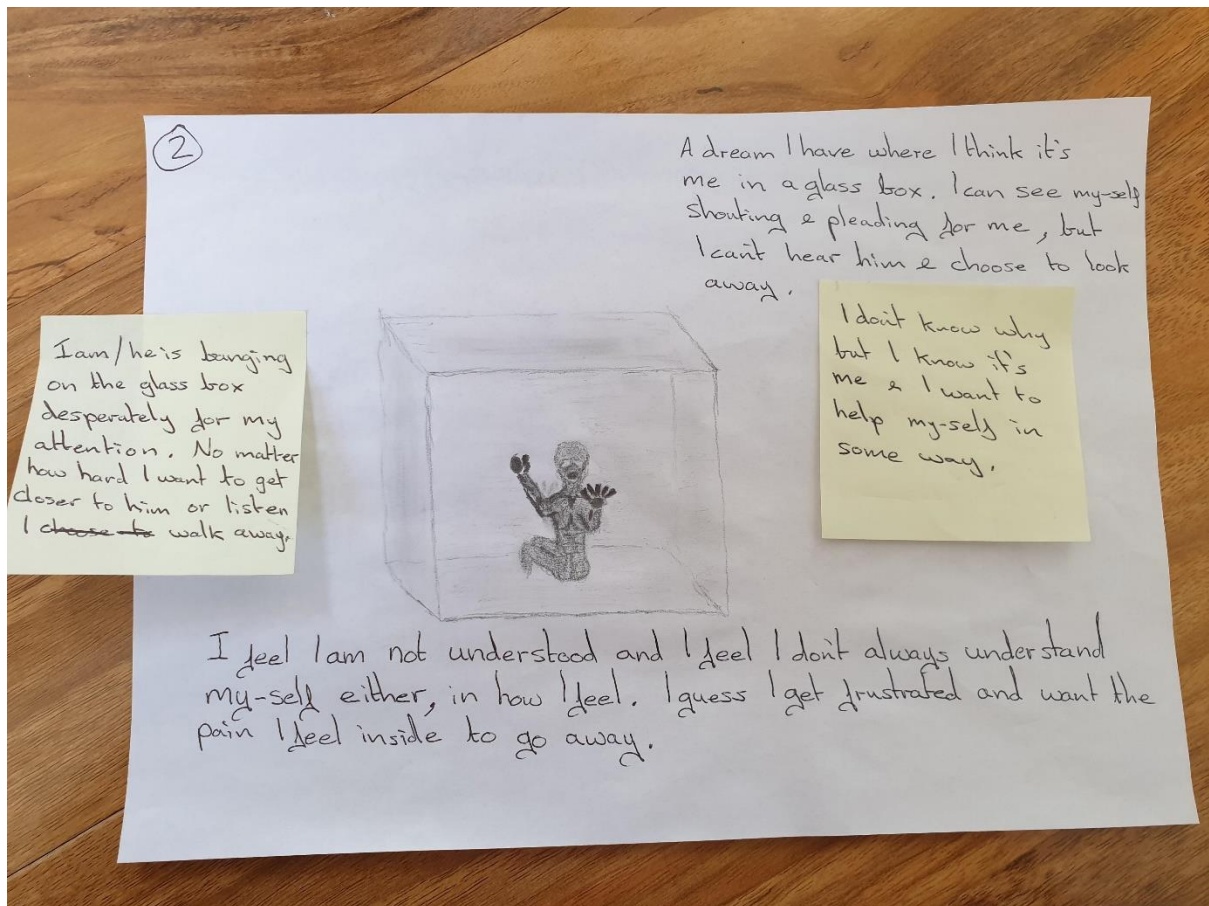 2
A dream I have where I think it's
me in a glass box. I can see my-self
shouting & pleading for me, but
I can't hear him & choose to look
away.
I am/he is banging
on the glass box
desperately for my
attention. No matter
how hard I want to get
closer to him or listen
I choose to walk away.
I don't know why
but I know it's
me & I want to
help my-self in
some way.
I feel I am not understood and I feel I don't always understand
my-self either, in how I feel. I guess I get frustrated and want the
pain I feel inside to go away.